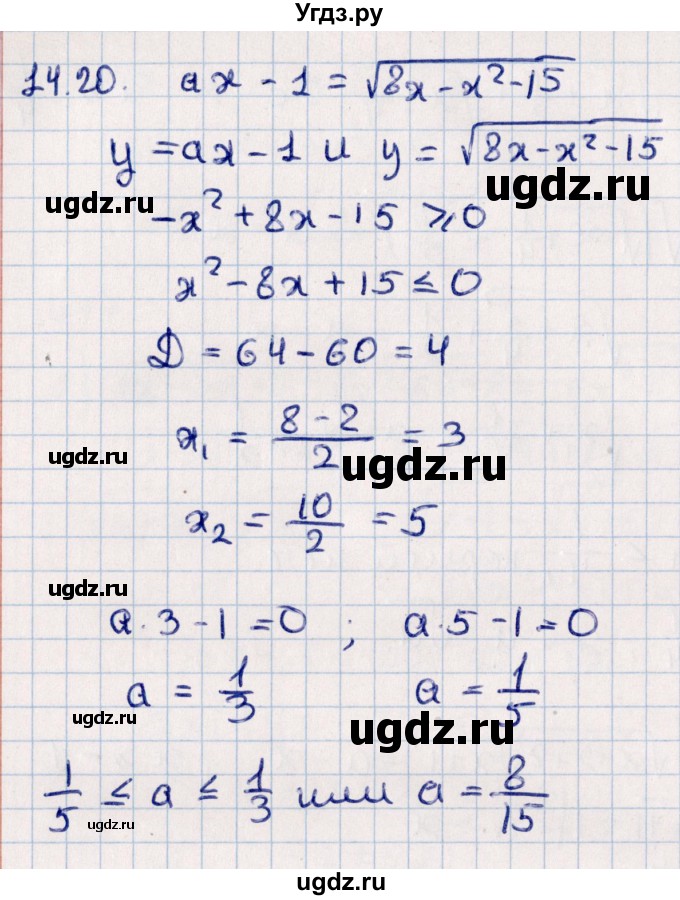 Угдз.ру
14.20. ax - 1 = √(8x - x² - 15)
y = ax - 1 и y = √(8x - x² - 15)
ugdz.ru ugdz.ru
-x² + 8x - 15 ⩾ 0
x² - 8x + 15 ≤ 0
D = 64 - 60 = 4
x₁ = (8 - 2)/2 = 3
ugdz.ru ugdz.ru
x₂ = 10/2 = 5
ugdz.ru
a · 3 - 1 = 0 ; a · 5 - 1 = 0
a = 1/3 a = 1/5
ugdz.ru ugdz.ru
1/5 ≤ a ≤ 1/3 или a = 8/15
ugdz.ru
ugdz.ru